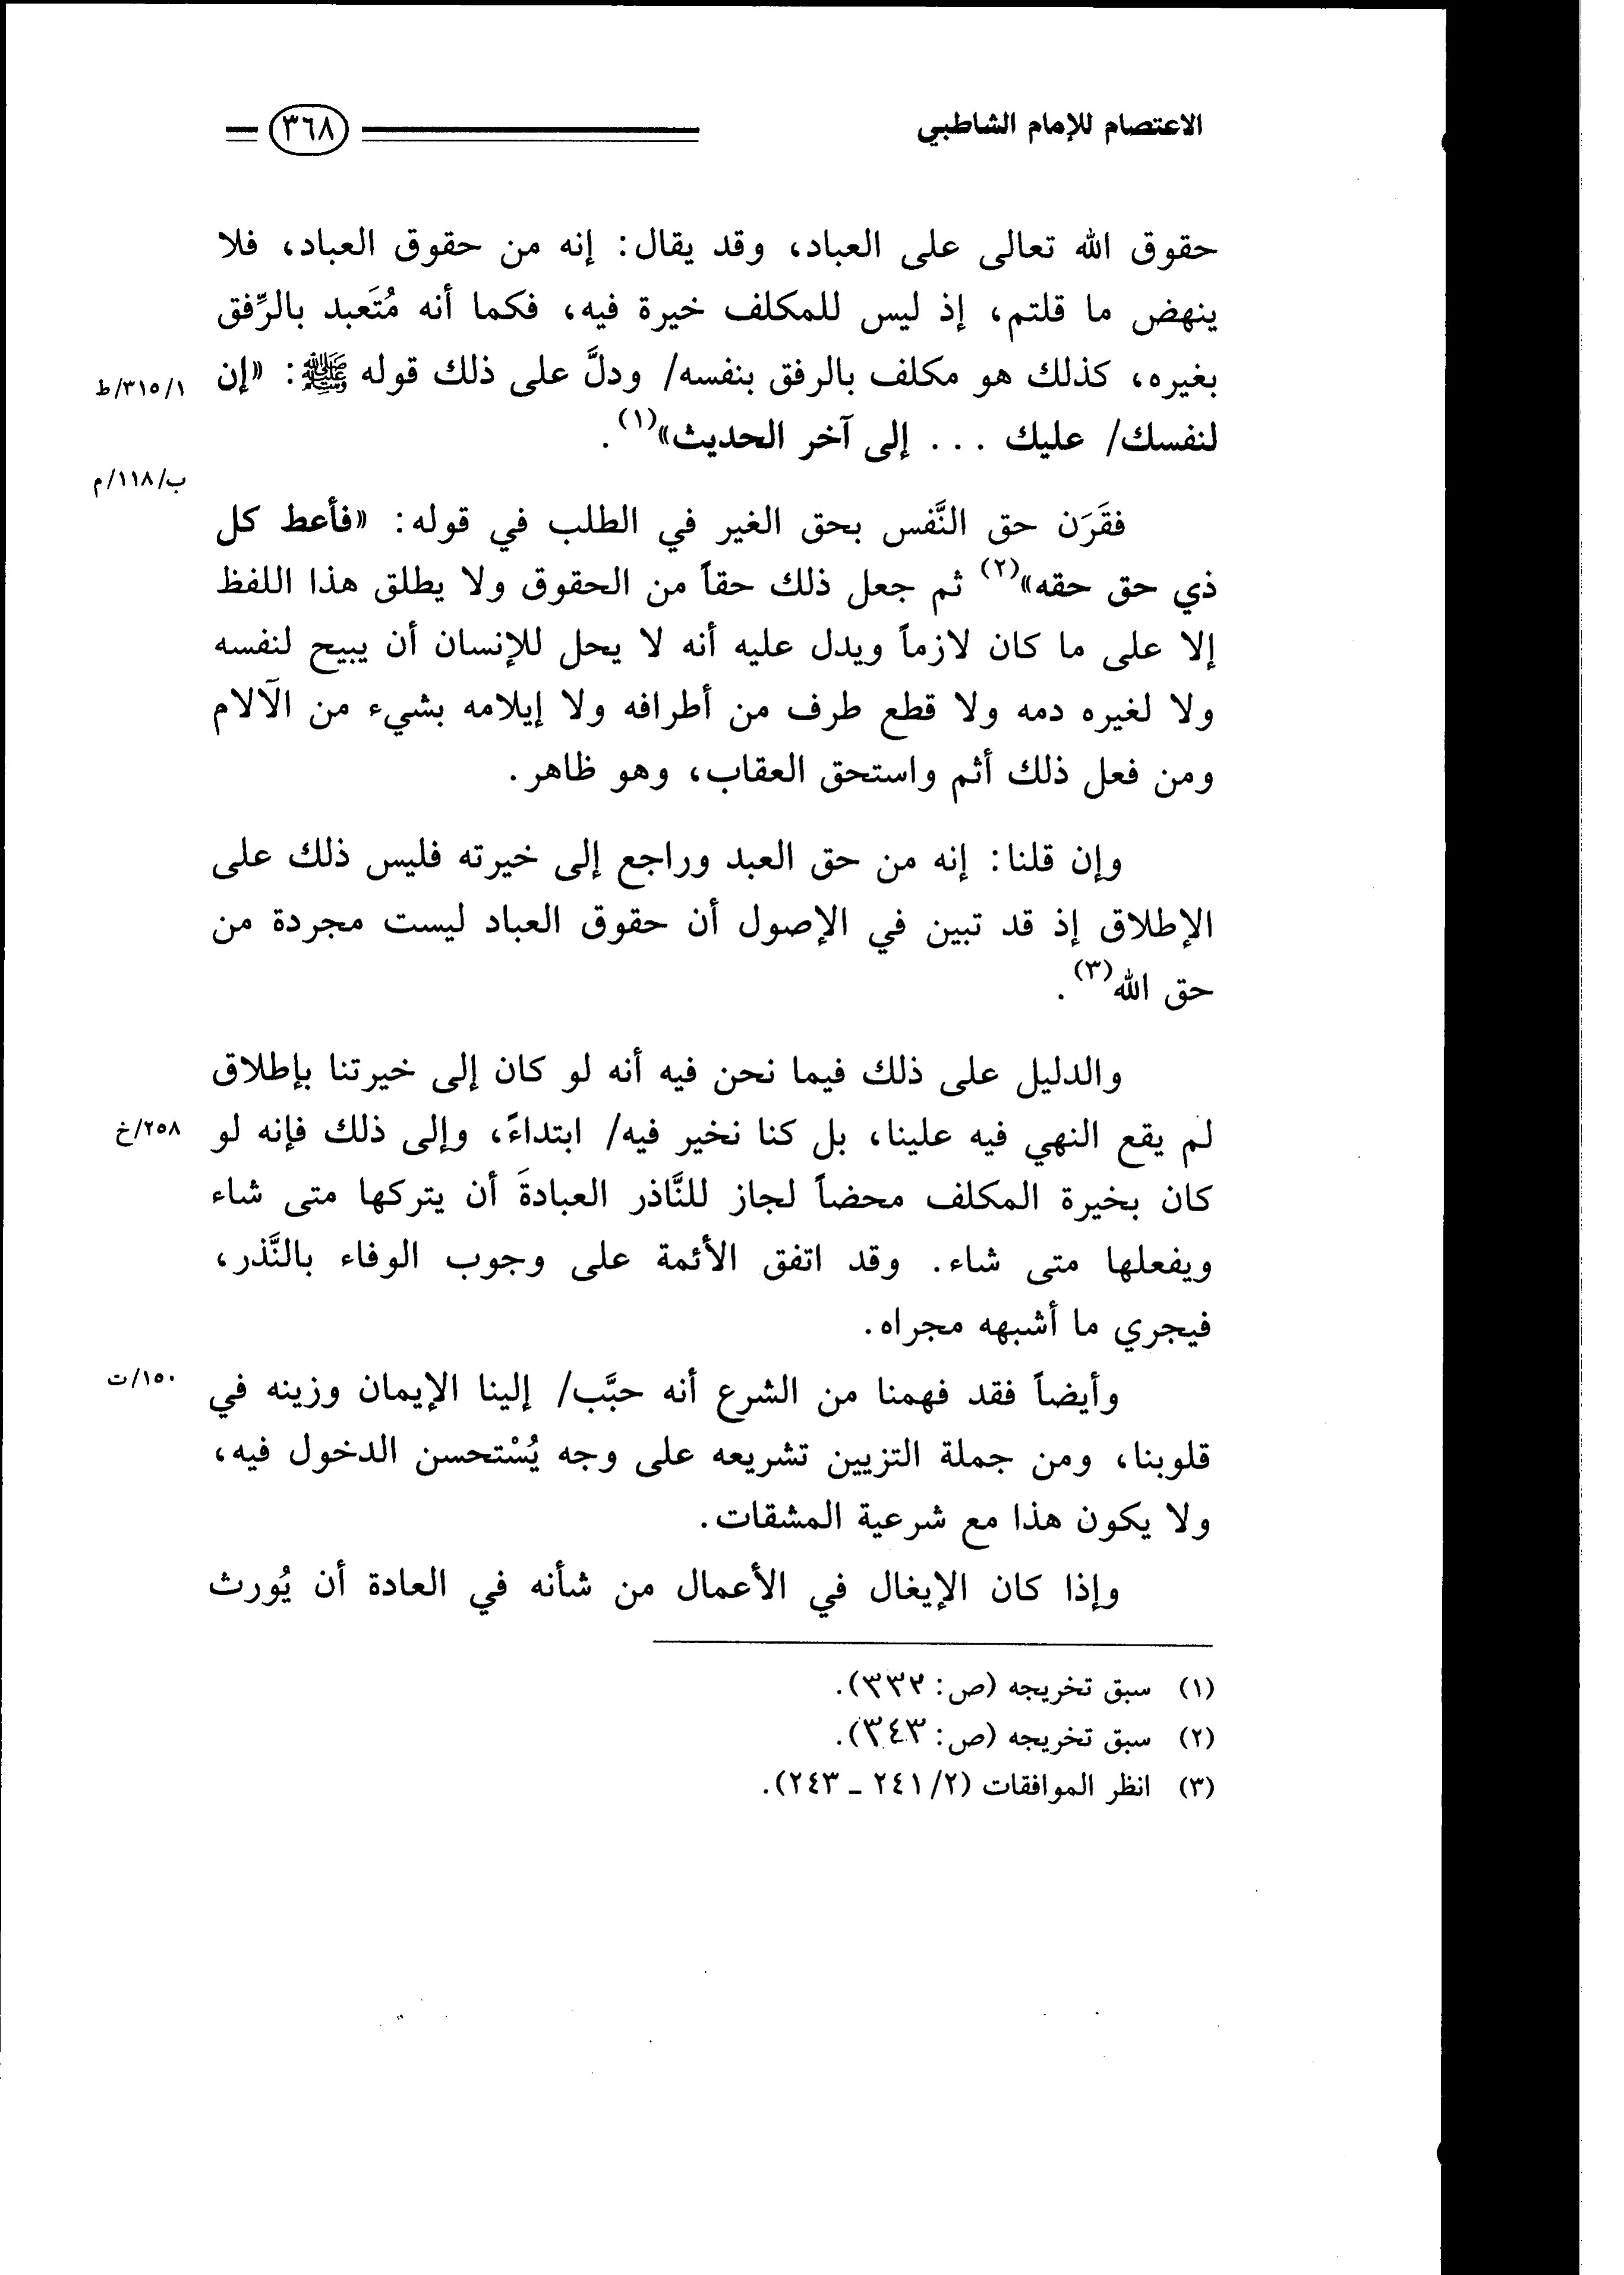 الاعتصام للإمام الشاطبي
٣٦٨
حقوق الله تعالى على العباد، وقد يقال: إنه من حقوق العباد، فلا
ينهض ما قلتم، إذ ليس للمكلف خيرة فيه، فكما أنه مُتَعبد بالرِّفق
بغيره، كذلك هو مكلف بالرفق بنفسه/ ودلَّ على ذلك قوله ﷺ: «إن
١/٣١٥/ط
لنفسك/ عليك ... إلى آخر الحديث»(١).
ب/١١٨/م
فقَرَن حق النَّفس بحق الغير في الطلب في قوله: «فأعط كل
ذي حق حقه»(٢) ثم جعل ذلك حقاً من الحقوق ولا يطلق هذا اللفظ
إلا على ما كان لازماً ويدل عليه أنه لا يحل للإنسان أن يبيح لنفسه
ولا لغيره دمه ولا قطع طرف من أطرافه ولا إيلامه بشيء من الآلام
ومن فعل ذلك أثم واستحق العقاب، وهو ظاهر.
وإن قلنا: إنه من حق العبد وراجع إلى خيرته فليس ذلك على
الإطلاق إذ قد تبين في الإصول أن حقوق العباد ليست مجردة من
حق الله(٣).
والدليل على ذلك فيما نحن فيه أنه لو كان إلى خيرتنا بإطلاق
لم يقع النهي فيه علينا، بل كنا نخير فيه/ ابتداءً، وإلى ذلك فإنه لو
٢٥٨/خ
كان بخيرة المكلف محضاً لجاز للنَّاذر العبادةَ أن يتركها متى شاء
ويفعلها متى شاء. وقد اتفق الأئمة على وجوب الوفاء بالنَّذر،
فيجري ما أشبهه مجراه.
وأيضاً فقد فهمنا من الشرع أنه حبَّب/ إلينا الإيمان وزينه في
١٥٠/ت
قلوبنا، ومن جملة التزيين تشريعه على وجه يُسْتحسن الدخول فيه،
ولا يكون هذا مع شرعية المشقات.
وإذا كان الإيغال في الأعمال من شأنه في العادة أن يُورث
(١) سبق تخريجه (ص: ٣٣٢).
(٢) سبق تخريجه (ص: ٣٤٣).
(٣) انظر الموافقات (٢/٢٤١ ـ ٢٤٣).